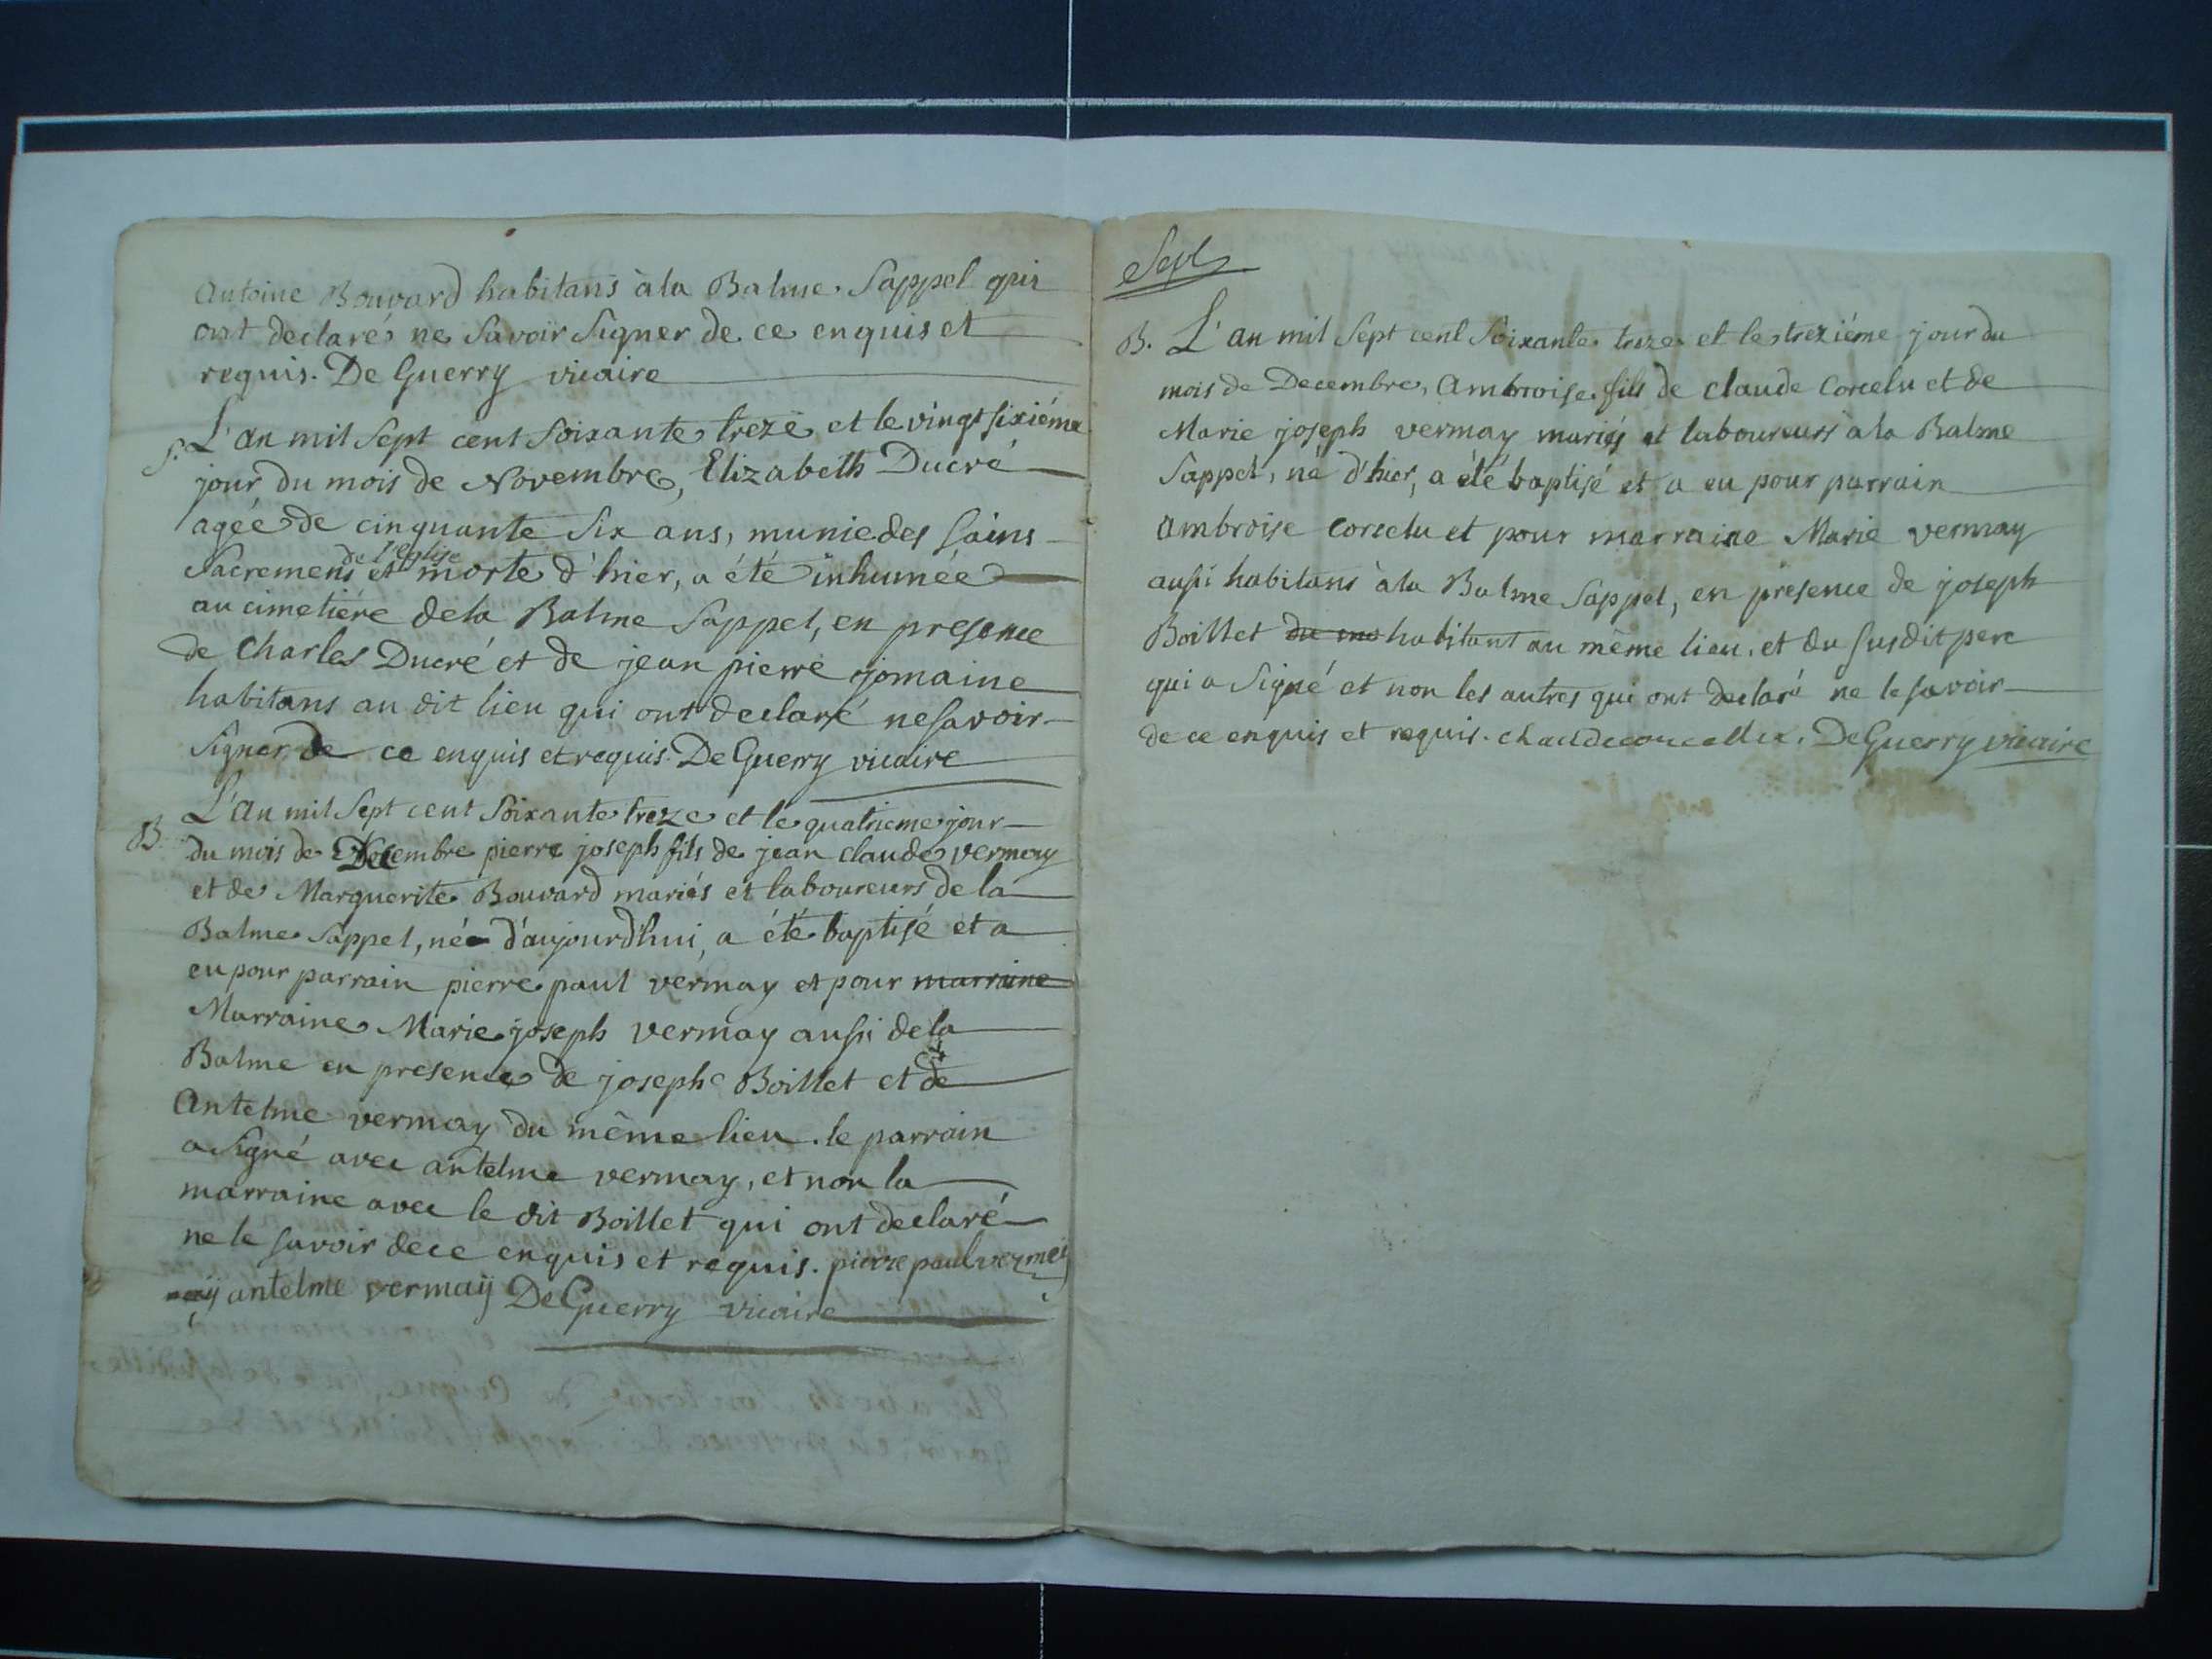 Antoine Bouvard habitans à la Balme Sappel qui
ont declarés ne Savoir Signer de ce enquis et
requis. De Guerry vicaire
S. L'an mil Sept cent Soixante treze et le vingt sixiéme
jour du mois de Novembre, Elizabeth Ducré
agée de cinquante Six ans, munie des Sains
de l'eglise
Sacremens et morte d'hier, a été inhumée
au cimetiére de la Balme Sappel, en presence
de Charles Ducré et de jean pierre jomaine
habitans au dit lieu qui ont declaré ne Savoir
Signer de ce enquis et requis. De Guerry vicaire
B. L'an mil Sept cent Soixante treze et le quatrieme jour
du mois de Decembre pierre joseph fils de jean claude vermay
et de Marguerite Bouvard mariés et laboureurs de la
Balme Sappel, né d'aujourd'hui, a été baptisé et a
eu pour parrain pierre paul vermay et pour marraine
Marraine Marie joseph vermay aussi de la
Balme en presence de joseph Boillet et de
Antelme vermay du même lieu. le parrain
a Signé avec antelme vermay, et non la
marraine avec le dit Boillet qui ont declaré
ne le savoir de ce enquis et requis. pierre paul vermei
antelme vermaÿ De Guerry vicaire
Sept
B. L'an mil Sept cent Soixante treze et le treziéme jour du
mois de Decembre, Ambroise fils de claude Corcelu et de
Marie joseph vermay mariés et laboureurs à la Balme
Sappel, né d'hier, a été baptisé et a eu pour parrain
Ambroise Corcelu et pour marraine Marie vermay
aussi habitans à la Balme Sappel, en presence de joseph
Boillet habitant au même lieu, et du susdit pere
qui a Signé et non les autres qui ont declaré ne le savoir
de ce enquis et requis. De Guerry vicaire